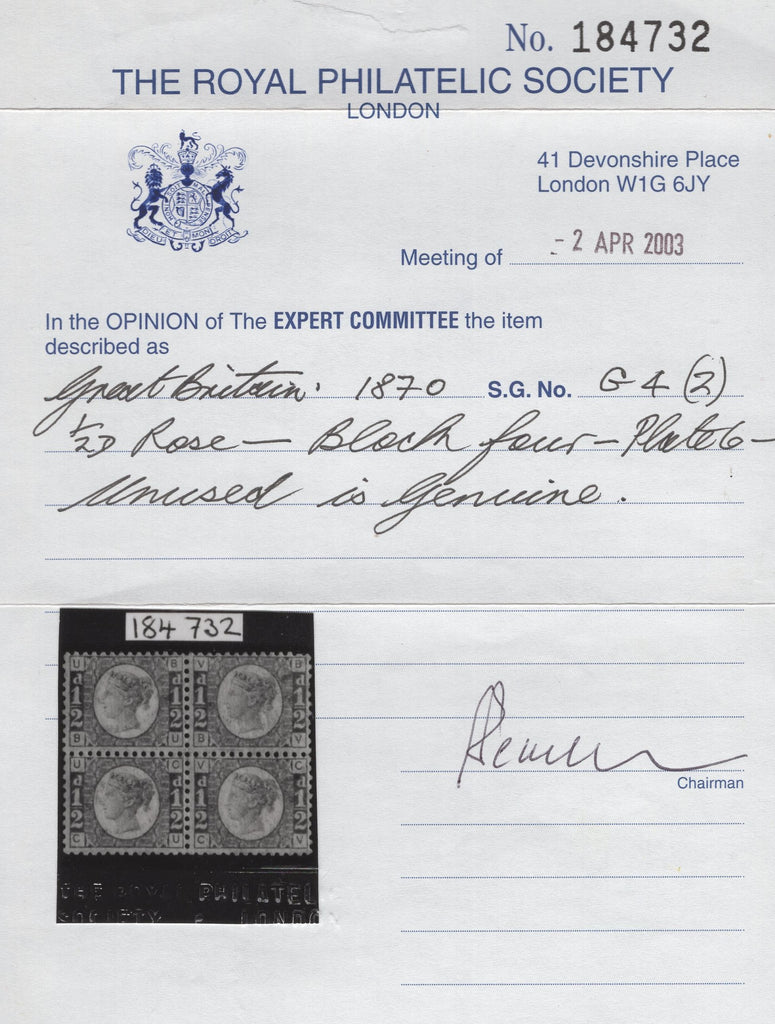 No. 184732
THE ROYAL PHILATELIC SOCIETY
LONDON
41 Devonshire Place
London W1G 6JY
Meeting of - 2 APR 2003
In the OPINION of The EXPERT COMMITTEE the item
described as
Great Britain. 1870 S.G. No. G4 (2)
1/2D Rose — Block four — Plate 6 —
Unused is Genuine.
184 732
U B V B
d 1/2 d 1/2 d 1/2 d 1/2
B U B V
U C V C
d 1/2 d 1/2 d 1/2 d 1/2
C U C V
THE ROYAL PHILATEL
SOCIETY LONDO
Chairman